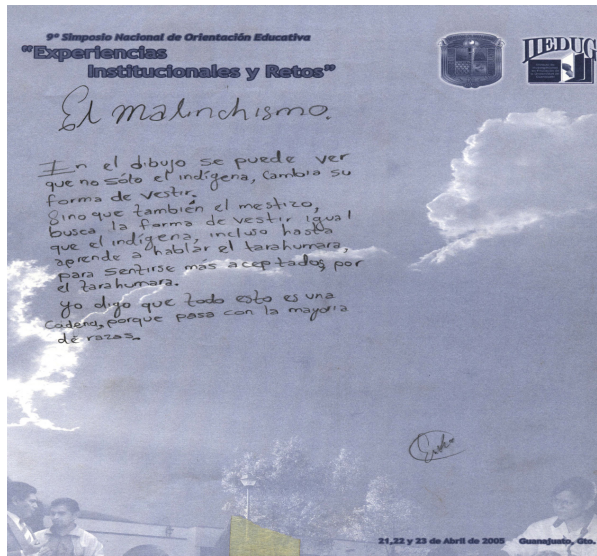 9º Simposio Nacional de Orientación Educativa
"Experiencias
Institucionales y Retos"
IIEDUG
El malinchismo.
In el dibujo se puede ver
que no sólo el indígena, cambia su
forma de vestir,
sino que también el mestizo,
busca la forma de vestir igual
que el indígena, incluso hasta
aprende a hablar el tarahumara,
para sentirse más aceptados por
el tarahumara.
yo digo que todo esto es una
Cadena, porque pasa con la mayoría
de razas.
21,22 y 23 de Abril de 2005 Guanajuato, Gto.